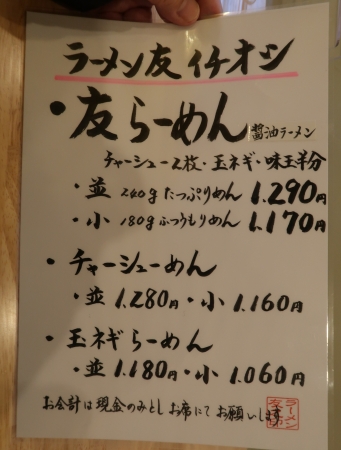 ラーメン友イチオシ
・友らーめん 醤油ラーメン
チャーシュー2枚・玉ネギ・味玉半分
・並 240gたっぷりめん 1.290円
・小 180gふつうもりめん 1.170円
・チャーシューめん
・並 1.280円・小 1.160円
・玉ネギらーめん
・並 1.180円・小 1.060円
お会計は現金のみとし お席にて お願いします
ラーメン